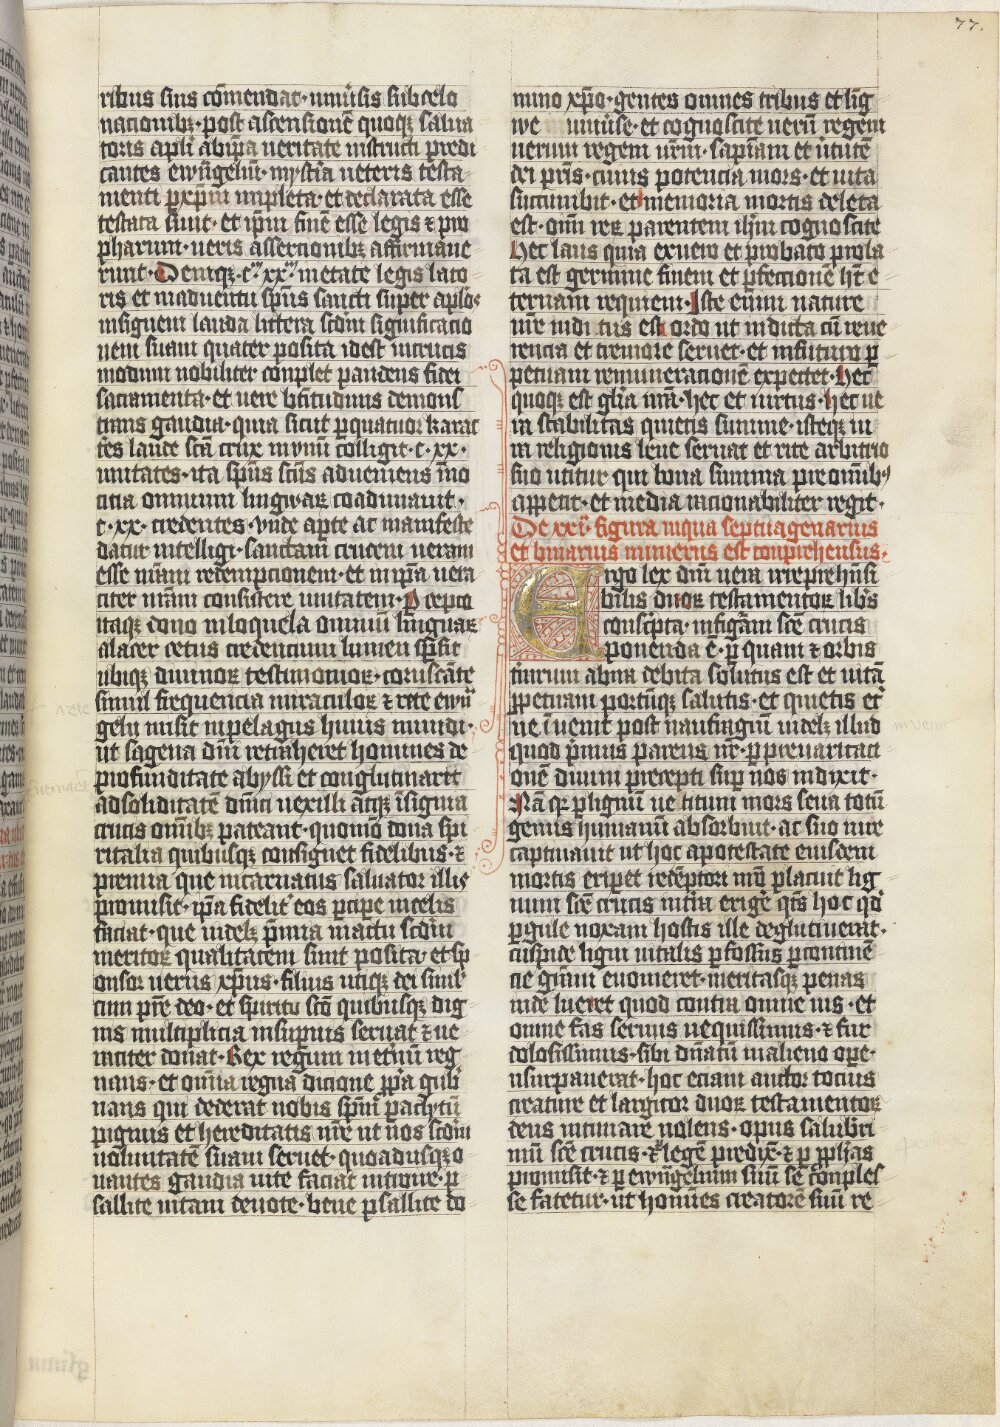 77.
ribus suis cōmendat · uniũsis sub celo
nacionibꝫ · post ascensionē quoqꝫ salua
toris apl̃i ab ip̃a ueritate instructi predi
cantes ewāgeliũ · mystia ueteris testa
menti p xp̃m impleta · et declarata esse
testata sunt · et ip̃m finē esse legis ⁊ pro
phetarum · ueris assertionibꝫ affirmaue
runt · Deniqꝫ · c · xx · in etate legis lato
ris et in aduentu sp̃us sancti super aplo
insignem lauda littera scd̃m significatio
nem suam quater posita idest in crucis
modum nobiliter conplet pandens fidei
sacramenta · et uere b̃titudinis demons̃
trans gaudia · quia sicut p quatuor karac
t̃es laude sc̃a crux in vnũ colligit · c · xx ·
unitates · ita sp̃us sc̃us adueniens ī no
titia omnium lingwaꝝ coadunauit ·
c · xx · credentes · vnde apte ac manifeste
datur intelligi · sanctam crucem ueram
esse nr̃am redemptionem · et in ip̃a uera
citer nr̃am consistere unitatem · Precepto
itaqꝫ dono in loquela omniũ linguaꝝ
alacer cetus credencium lumen sp̃ssit
ubiqꝫ diuinoꝝ testimonioꝝ · coruscāte
simul frequencia miraculoꝝ ⁊ rete ewā
gelij misit in pelagus huius mundi ·
ut sagena dñi retraheret homines de
profunditate abyssi et conglutinarēt
ad soliditatē dñici uexilli atqꝫ īsignia
crucis omībꝫ pateant · quomō dona spi
ritalia quibusqꝫ consignet fidelibus · ⁊
premia que incarnatus saluator illis
promisit · ip̃a fidelit̾ eos p̱cipe in celis
faciat · que uidelꝫ p̃mia iuxta scd̃m
meritoꝝ qualitatem sunt posita · et sp
onsor uerus xp̃us · filius utiqꝫ dei simul
cum pr̃e deo · et spiritu scõ quibusqꝫ dig
nis multiplicia in sup̱nis seruat ⁊ ue
raciter donat · Rex regum in et̾nũ reg
nans · et om̃ia regna dicione ꝓp̃a gub̃
nans qui dederat nobis sp̃m paclytũ
pignus et hereditatis nr̃e ut nos scd̃m
uoluntatē suam seruet · quoadusqꝫ o
uantes gaudia uite faciat intrare · p
sallite uitam deuote · bene psallite do
mino xp̃o · gentes omnes tribus et lig
we uniũse · et cognoscite uerũ regem
uerum regem ur̃m · sap̃iam et ũtutē
dei pr̃is · cuius potencia mors · et uita
succumbit · et memoria mortis deleta
est · om̃i reꝝ parentem ih̃m cognoscite
Hec laus quia ex uero et probato prola
ta est germine finem et p̱fectionē hr̃e e
ternam requiem · Iste enim nature
nr̃e inditus est ordo ut indicta cũ reue
rencia et tremore seruet · et in futuro p̱
petuam remuneracionē expectet · Hec
quoqꝫ est gl̃ia nr̃a · hec et uirtus · Hec ue
ra stabilitas quietis sum̄e · isteqꝫ ui
in religionis leue seruat et rite arbitrio
suo utitur qui bona summa pre om̃ibꝫ
appetit · et media racionabiliter regit ·
De xxii · figura in qua septuagenarius
et binarius numerus est conprehensus ·
Ergo lex dñi uera irreprehensi
bilis duoꝝ testamentoꝝ lib̃s
conscip̃ta · in figuram scē crucis
ponenda ē · p̱ quam ⁊ orbis
t̾rarum ab ira debita solutus est et uitā
p̱petuam portumqꝫ salutis · et quietis et̾
ne īuenit post naufragiũ uidelꝫ illud
quod p̃mus parens nr̃ · p̱ p̱reuaricati
onē diuini precepti sup̱ nos induxit ·
Nā qꝛ p̱ lignũ ue titum mors seua totũ
genus humanũ absorbuit · ac suo iure
captiuauit ut hoc a potestate eiusdem
mortis eripet redēptori mõ placuit lig
num scē crucis nostri erige q̃tꝰ hoc qd̃
p̱ gule noxam hostis ille deglutiuerat ·
cuspide ligni uitalis p̱fossus p̱ continē
cie g̃nim euomeret · meritasqꝫ penas
inde lueret quod contra omne ius · et
omne fas seruus nequissimus · ⁊ fur
dolosissimus · sibi dñatũ in alieno ope ·
usurpauerat · hoc eciam auctor tocius
creature et largitor duoꝝ testamentoꝝ
deus intimare uolens · opus salubri
mũ scē crucis · ⁊ legē predixit · ⁊ p̱ p̱ph̃as
promisit · ⁊ p̱ ewangelium suũ se conples
se fatetur · ut homines creatorē suũ re